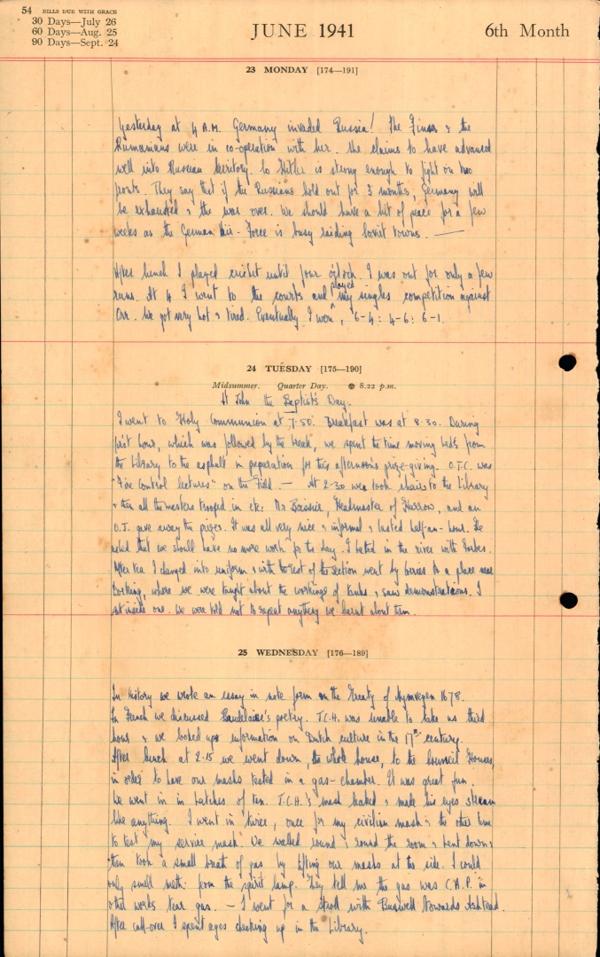 54 BILLS DUE WITH GRACE
30 Days—July 26
60 Days—Aug. 25
90 Days—Sept. 24
JUNE 1941
6th Month
23 MONDAY [174—191]
Yesterday at 4 A.M. Germany invaded Russia! The Finns & the
Rumanians were in co-operation with her. She claims to have advanced
well into Russian territory. So Hitler is strong enough to fight on two
fronts. They say that if the Russians hold out for 3 months, Germany will
be exhausted & the war over. We should have a bit of peace for a few
weeks as the German Air-Force is busy raiding Soviet towns. —
After lunch I played cricket until four o'clock. I was out for only a few
runs. At 4 I went to the courts and played my singles competition against
Orr. We got very hot & tired. Eventually I won, 6-4: 4-6: 6-1.
24 TUESDAY [175—190]
Midsummer. Quarter Day. 8.22 p.m.
St John the Baptist's Day.
I went to Holy Communion at 7.50. Breakfast was at 8.30. During
first hour, which was followed by the break, we spent the time moving beds from
the Library to the asphalt in preparation for this afternoon's prize-giving. O.T.C. was
"Fire control lectures" on the field. — At 2-30 we took chairs to the Library
& then all the masters trooped in etc. Mr Headmaster of Harrow, and an
O.J. gave away the prizes. It was all very nice & informal & lasted half-an-hour. He
asked that we should have no more work for the day. I bathed in the river with Forbes.
After tea I changed into uniform & with the rest of the section went by to a place near
Dorking, where we were taught about the workings of tanks & saw demonstrations. I
sat inside one. We were told not to repeat anything we learnt about them.
25 WEDNESDAY [176—189]
In history we wrote an essay in note form on the Treaty of Nymwegen 1678.
In French we discussed Baudelaire's poetry. T.C.H. was unable to take us third
hour & we looked up information on Dutch culture in the 17th century.
After lunch at 2-15 we went down, the whole house, to the Council Houses,
in order to have our masks tested in a gas-chamber. It was great fun.
We went in in batches of ten. T.C.H.'s mask leaked & made his eyes stream
like anything. I went in twice, once for my civilian mask & the other time
to test my service mask. We walked round & round the room & bent down &
then took a small breath of gas by lifting our masks at the side. I could
only smell meths from the spirit lamp. They tell me the gas was C.A.P. in
other words tear gas. — I went for a stroll with towards Ashtead.
After call-over I spent ages checking up in the Library.